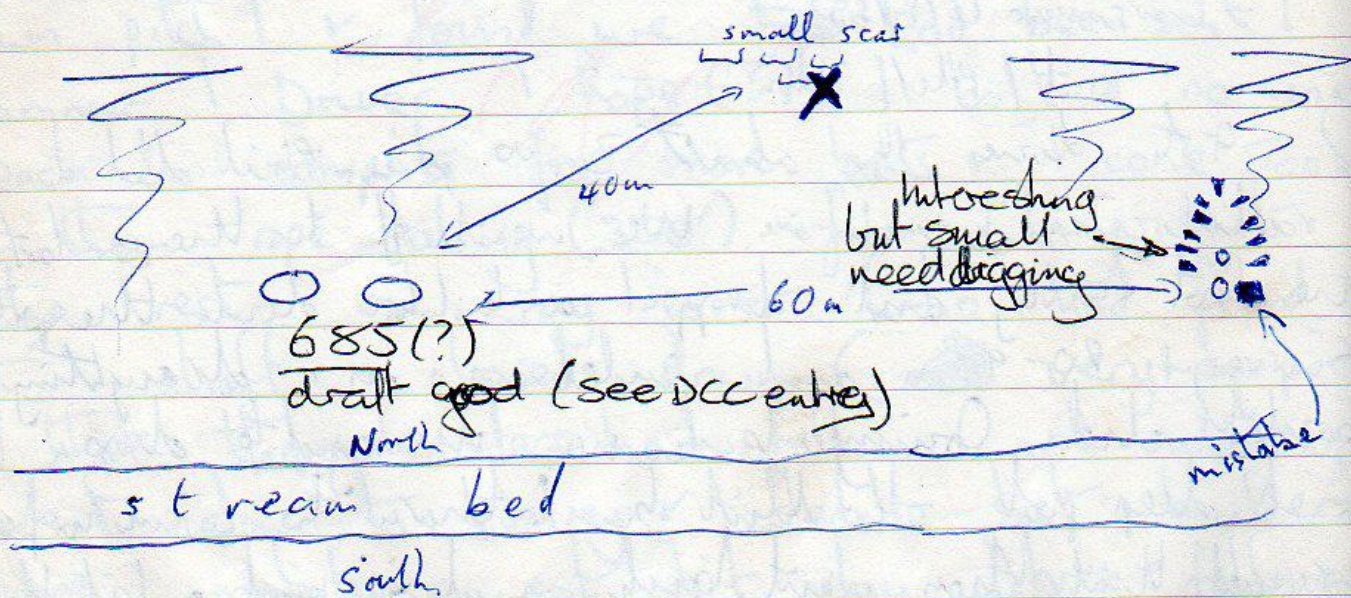 small scar
X
40m
Interesting
but small
need digging
60m
685(?)
draft good (see DCC entry)
North
mistake
stream bed
South